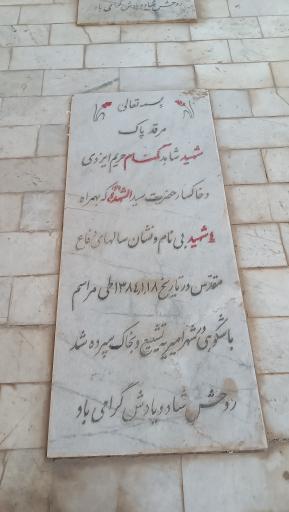 روحش شاد و یادش گرامی باد
بسمه تعالی
مرقد پاک
شهید شاهد گمنام حریم ایزدی
و خاکسار حضرت سید الشهداء که بهمراه
٤ شهید بی نام و نشان سالهای دفاع
مقدس در تاریخ ۱۳۸٤،۱،۱۸ طی مراسم
باشکوهی در شهر امیریه تشییع و بخاک سپرده شد
روحش شاد و یادش گرامی باد